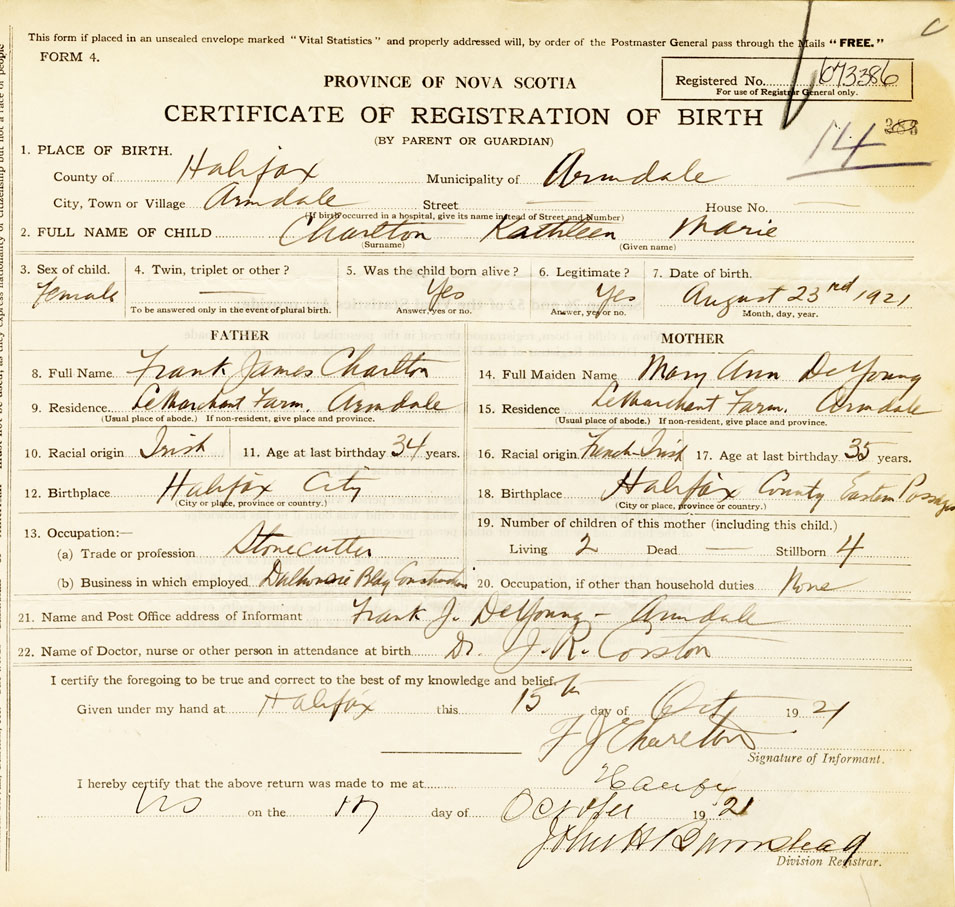 This form if placed in an unsealed envelope marked "Vital Statistics" and properly addressed will, by order of the Postmaster General pass through the Mails "FREE."
FORM 4.
PROVINCE OF NOVA SCOTIA
Registered No. 673386
For use of Registrar General only.
CERTIFICATE OF REGISTRATION OF BIRTH
(BY PARENT OR GUARDIAN)
14
1. PLACE OF BIRTH.
County of Halifax Municipality of Armdale
City, Town or Village Armdale Street — House No. —
(If birth occurred in a hospital, give its name instead of Street and Number)
2. FULL NAME OF CHILD Charlton Kathleen Marie
(Surname) (Given name)
3. Sex of child. 4. Twin, triplet or other? 5. Was the child born alive? 6. Legitimate? 7. Date of birth.
Female — Yes Yes August 23rd 1921
To be answered only in the event of plural birth. Answer, yes or no. Answer, yes or no. Month, day, year.
FATHER
8. Full Name Frank James Charlton
9. Residence LeMarchant Farm. Armdale
(Usual place of abode.) If non-resident, give place and province.
10. Racial origin Irish 11. Age at last birthday 34 years.
12. Birthplace Halifax City
(City or place, province or country.)
13. Occupation:—
(a) Trade or profession Stonecutter
(b) Business in which employed Dalhousie Bldg Construction
MOTHER
14. Full Maiden Name Mary Ann DeYoung
15. Residence LeMarchant Farm. Armdale
(Usual place of abode.) If non-resident, give place and province.
16. Racial origin French-Irish 17. Age at last birthday 35 years.
18. Birthplace Halifax County Eastern Passage
(City or place, province or country.)
19. Number of children of this mother (including this child.)
Living 2 Dead — Stillborn 4
20. Occupation, if other than household duties None
21. Name and Post Office address of Informant Frank J. DeYoung - Armdale
22. Name of Doctor, nurse or other person in attendance at birth Dr. J. R. Corston
I certify the foregoing to be true and correct to the best of my knowledge and belief.
Given under my hand at Halifax this 15th day of Oct 1921
F J Charlton
Signature of Informant.
I hereby certify that the above return was made to me at Halifax
on the 17 day of October 1921
John H Barnstead
Division Registrar.